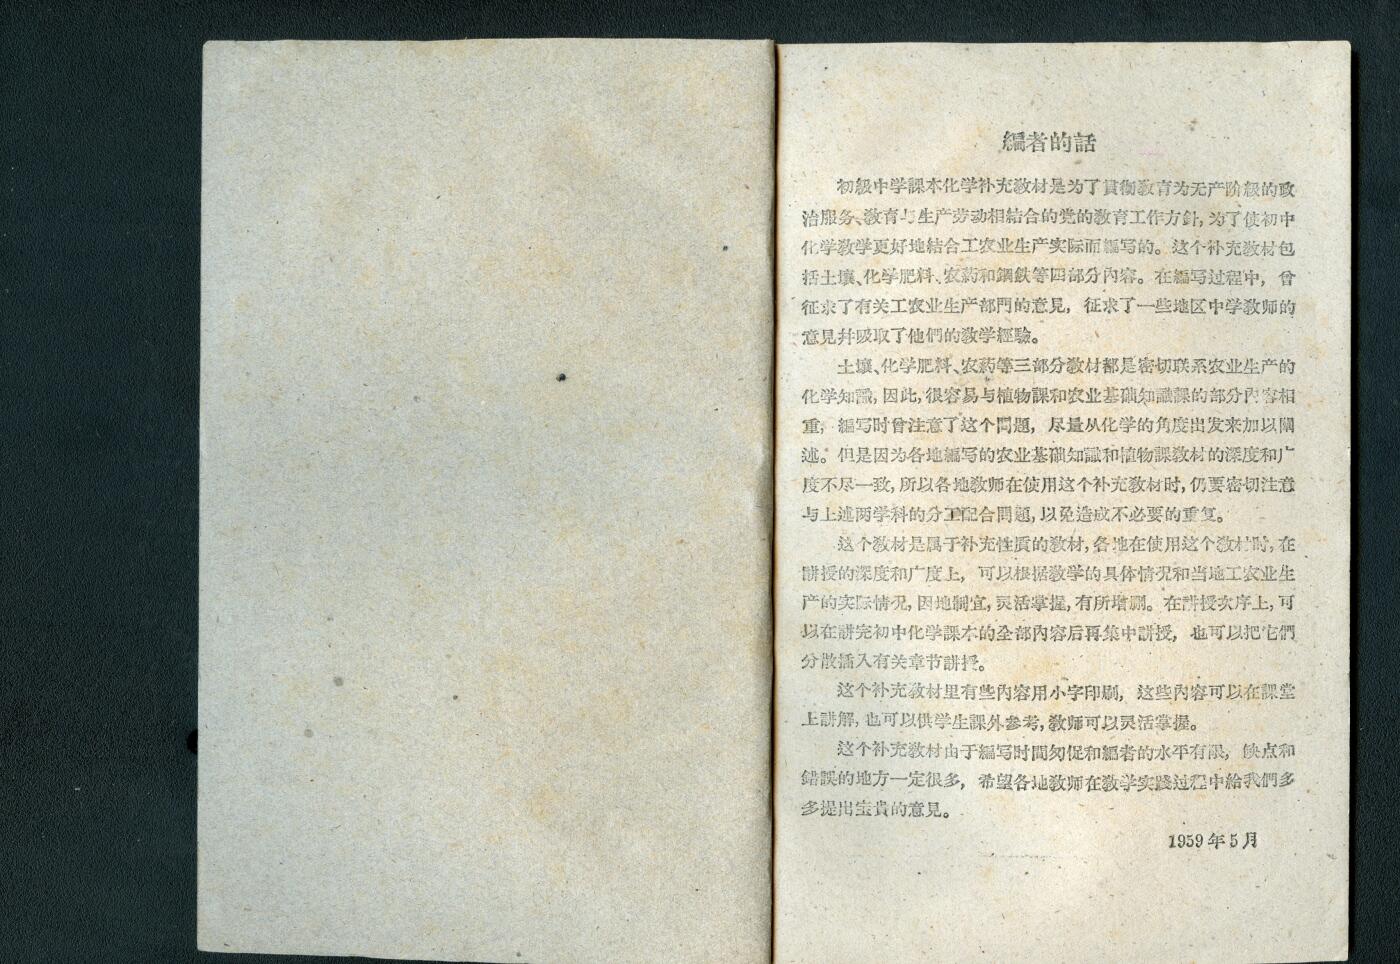 編者的話
初級中学課本化学补充教材是为了貫彻教育为无产阶級的政
治服务、教育与生产劳动相結合的党的教育工作方針,为了使初中
化学教学更好地結合工农业生产实际而編写的。这个补充教材包
括土壤、化学肥料、农药和鋼鉄等四部分内容。在編写过程中,曾
征求了有关工农业生产部門的意見,征求了一些地区中学教师的
意見幷吸取了他們的教学經驗。
土壤、化学肥料、农药等三部分教材都是密切联系农业生产的
化学知識,因此,很容易与植物課和农业基础知識課的部分内容相
重,編写时曾注意了这个問題,尽量从化学的角度出发来加以闡
述。但是因为各地編写的农业基础知識和植物課教材的深度和广
度不尽一致,所以各地教师在使用这个补充教材时,仍要密切注意
与上述两学科的分工配合問題,以免造成不必要的重复。
这个教材是属于补充性質的教材,各地在使用这个教材时,在
講授的深度和广度上,可以根据教学的具体情况和当地工农业生
产的实际情况,因地制宜,灵活掌握,有所增删。在講授次序上,可
以在講完初中化学課本的全部内容后再集中講授,也可以把它們
分散插入有关章节講授。
这个补充教材里有些内容用小字印刷,这些内容可以在課堂
上講解,也可以供学生課外参考,教师可以灵活掌握。
这个补充教材由于編写时間匆促和編者的水平有限,缺点和
錯誤的地方一定很多,希望各地教师在教学实践过程中給我們多
多提出宝貴的意見。
1959年5月